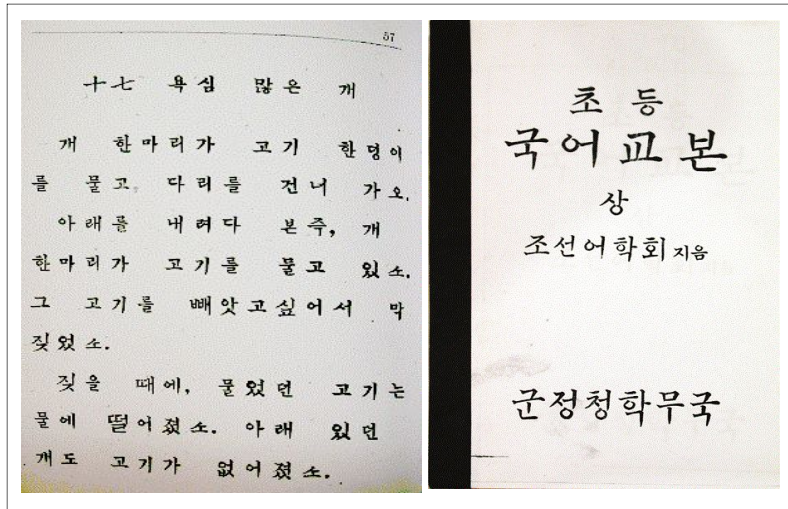 57
十七 욕심 많은 개
개 한마리가 고기 한덩이
를 물고, 다리를 건너 가오.
아래를 내려다 본즉, 개
한마리가 고기를 물고 있소.
그 고기를 빼앗고싶어서 막
짖었소.
짖을 때에, 물었던 고기는
물에 떨어졌소. 아래 있던
개도 고기가 없어졌소.
초등
국어교본
상
조선어학회 지음
군정청학무국